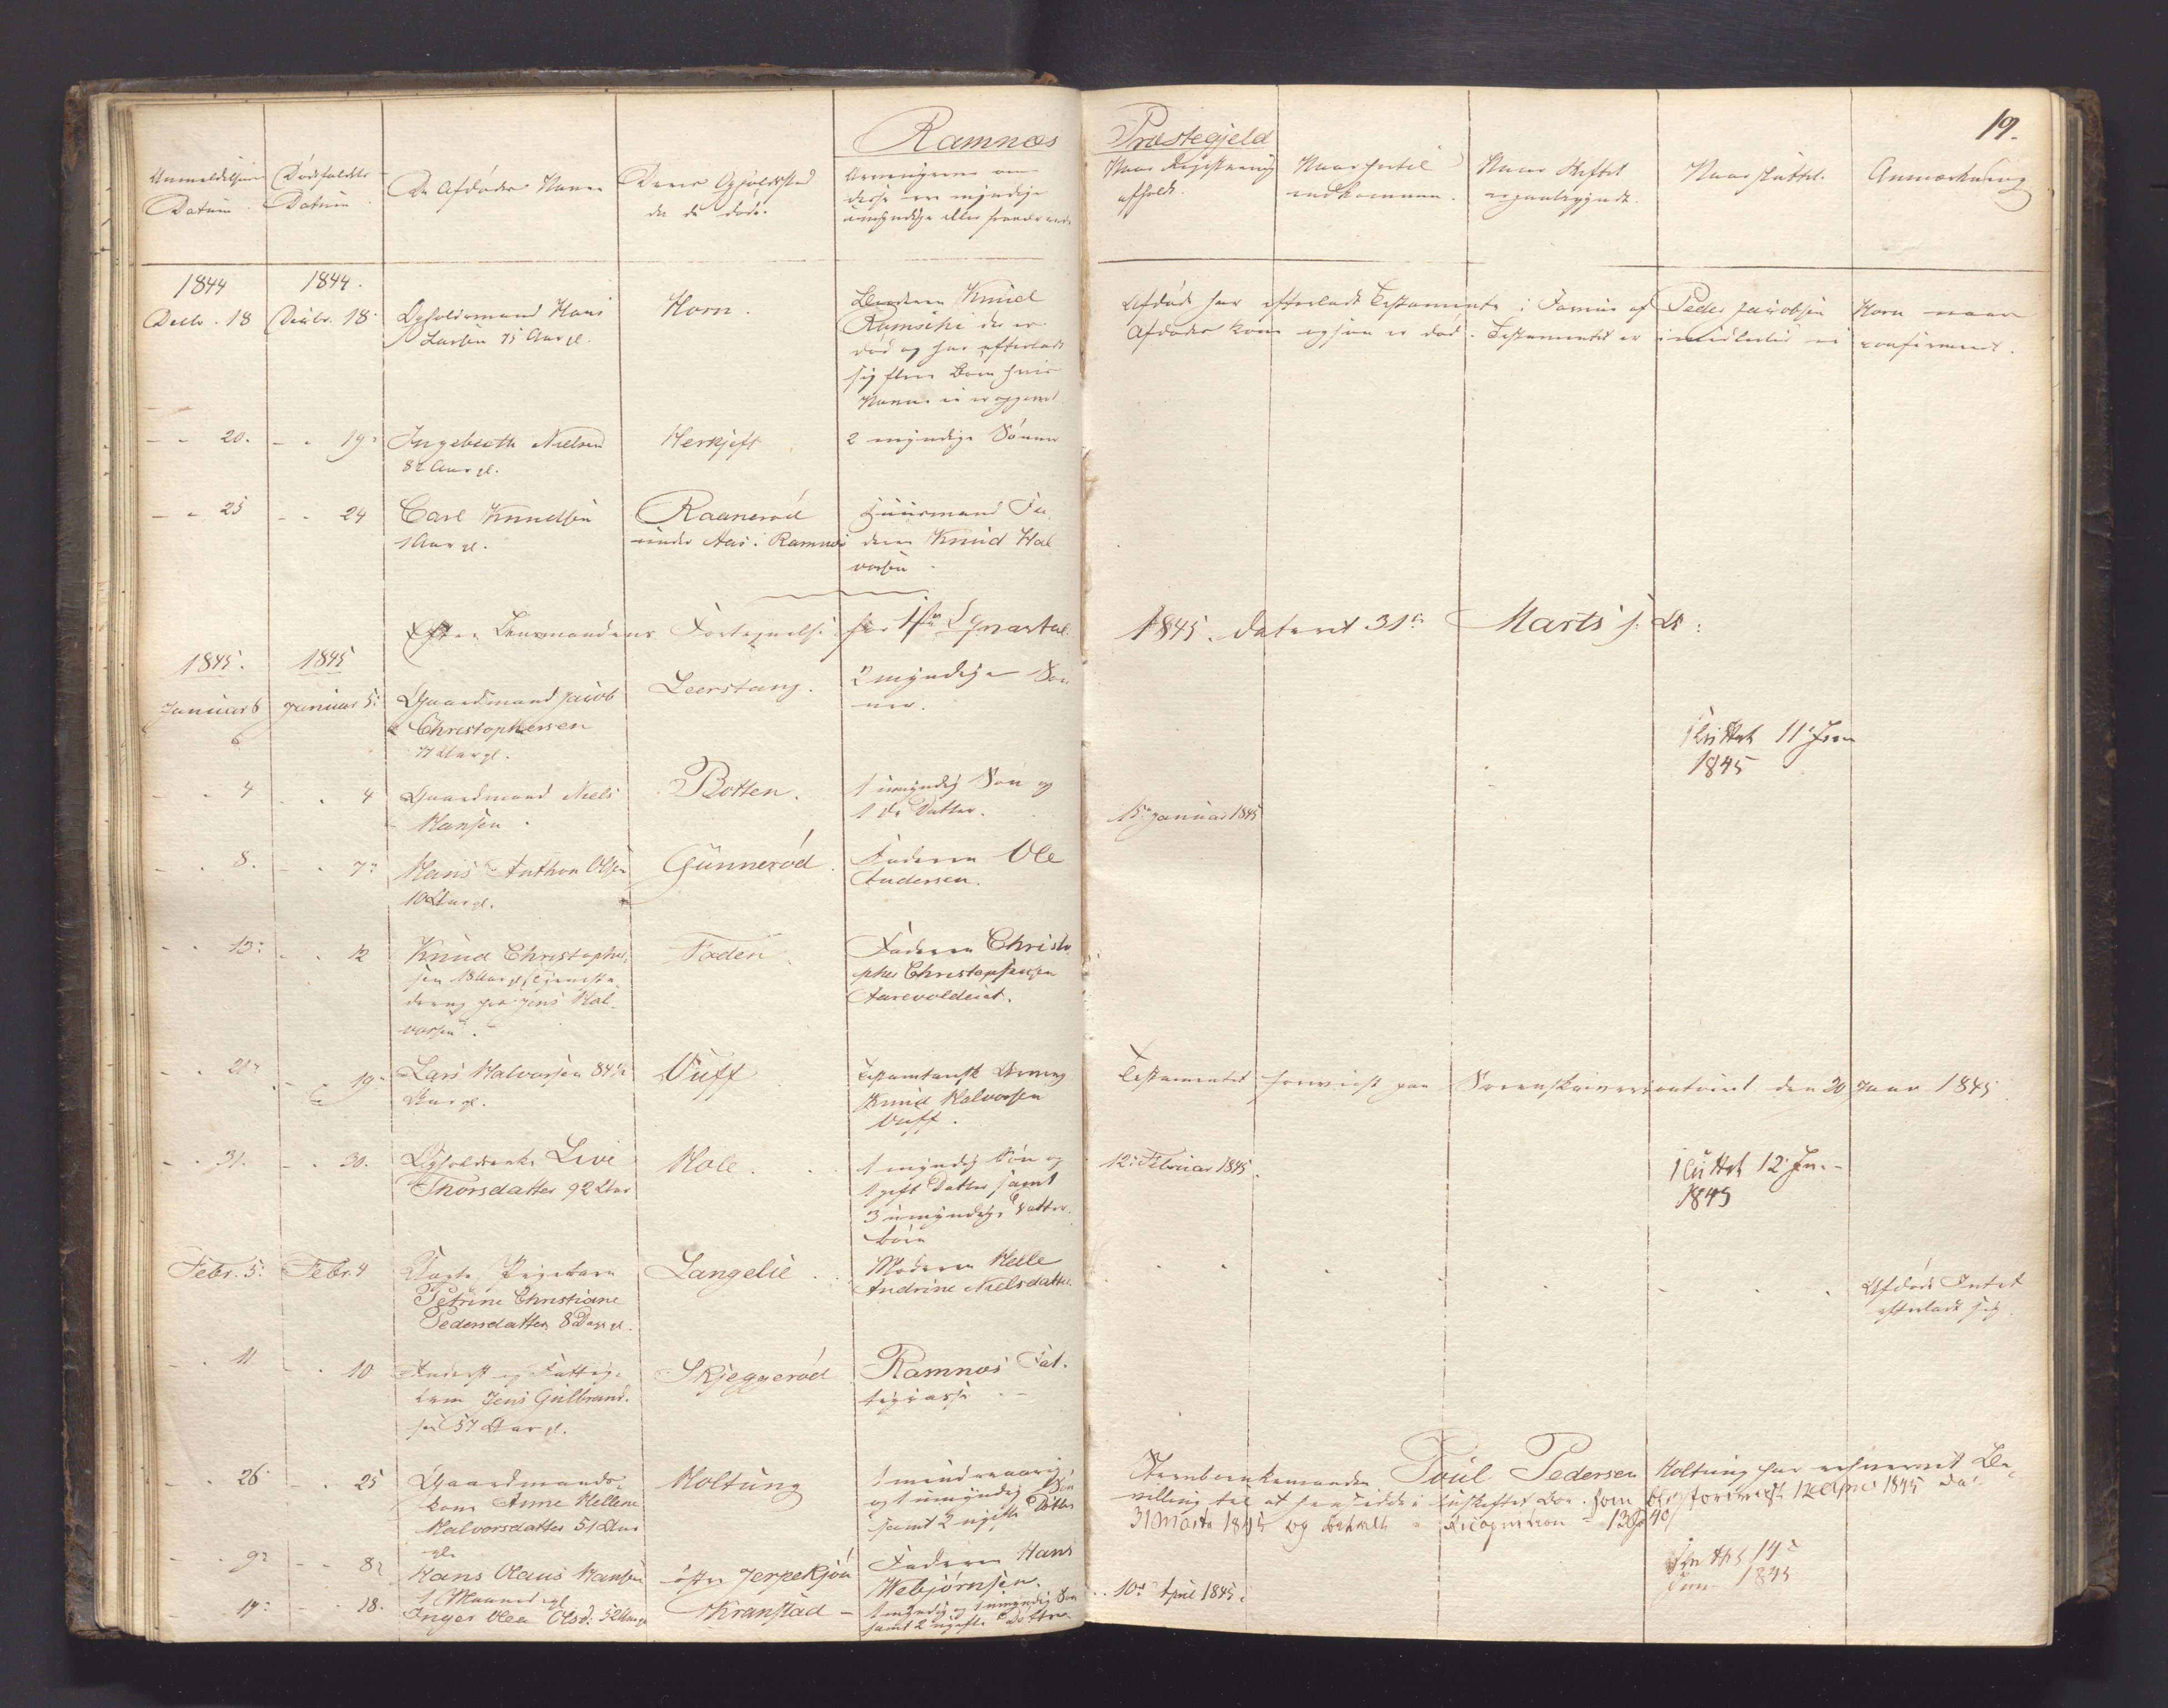 19.
Ramnæs Præstegjeld
Anmeldelsens Datum
Dødsfaldets Datum
De Afdødes Navne
Deres Opholdssted da de døde.
Arvingerne om disse ere myndige umyndige eller fraværende
Naar Registrering afholdt.
Naar hertil indkommen.
Naar Skiftet er paabegyndt.
Naar sluttet.
Anmærkning
1844
1844.
Decbr. 18
Decbr. 18
Opholdsmand Hans
Larsen 75 Aar gl.
Horn.
Knud
Ramsiki der er
død og har efterladt
sig flere Børn hvis
Navne ei er opgivet
Afdøde har efterladt Testamente i Faveur af Peder Jacobsen Horn naar
Afdødes Kone ogsaa er død. Testamentet er imidlertid ei confirmeret.
20.
19
Ingebreth Nielsen
82 Aar gl.
Herkjeft
2 myndige Sönner
25
24
Carl Knudsen
1 Aar gl.
Raanerød
under Aas i Ramnæs
Huusmand Fa-
deren Knud Hal
vorsen
Efter Lensmandens Fortegnelse for 1ste Qvartal 1845. dateret 31te Marts s. A:
1845.
1845
Januar 6
Januar 5
Gaardmand Jacob
Christophersen
77 Aar gl.
6
Leerstang.
2 myndige Søn
ner.
sluttet 11 Jun
1845
4
4
Gaardmand Niels
Hansen
Botten.
1 umyndig Søn og
1 do Datter.
15 Januar 1845
8.
7
Hans Anthon Olsen
10 Aar gl.
Gunnerød
Faderen Ole
Andersen.
13
12
Knud Christopher-
sen 18 Aar gl. tjeneste
dreng hos Jens Hal-
vorsen.
Foden
Faderen Christo
pher Christophersen
Aarevoldeiet.
21
19
Lars Halvorsen 84½
Aar gl.
Vuff
Testamentarisk Arving
Knud Halvorsen
Vuff.
Testamentet foreviist paa Sorenskriverkontoiret den 30 Januar 1845
31.
30.
Opholdsenke Live
Thorsdatter 92 Aar
Hole.
1 myndig Søn og
1 gift Datter samt
3 umyndige Datter-
børn
12 Februar 1845.
sluttet 12 Jun
1845
Febr. 5
Febr. 4
Pigebarn
Petrine Christiane
Pedersdatter 8 Dage gl.
Langelie
Moderen Helle
Andrine Nielsdatter
Afdøde Intet
efterladt sig.
11
10
Inderst og Fattig-
lem Jens Gulbrand-
sen 57 Aar gl.
Skjeggerød
Ramnæs Fat-
tigcasse
26
25
Gaardmands-
kone Anne Hellene
Halvorsdatter 51 Aar
gl.
Holtung
1 mindreaarig
og 1 umyndig Søn
samt 2 ugifte Døttre
Enkemanden Poul Pedersen Holtung har erhvervet Be-
villing til at hensidde i uskiftet Boe. som blev forevist 12 April 1845 da
31 Marts 1845 og betalt Recognition
9
8
Hans Olaus Hansen
1 Maaned gl.
østre Jerpekjøn
Faderen Hans
Webjørnsen.
19
18.
Inger Olea Olsd: 52 Aar gl
Kranstad
1 myndig og 1 umyndig Søn
samt 2 ugifte Døttre
10 April 1845.
sluttet 14
Jun 1845